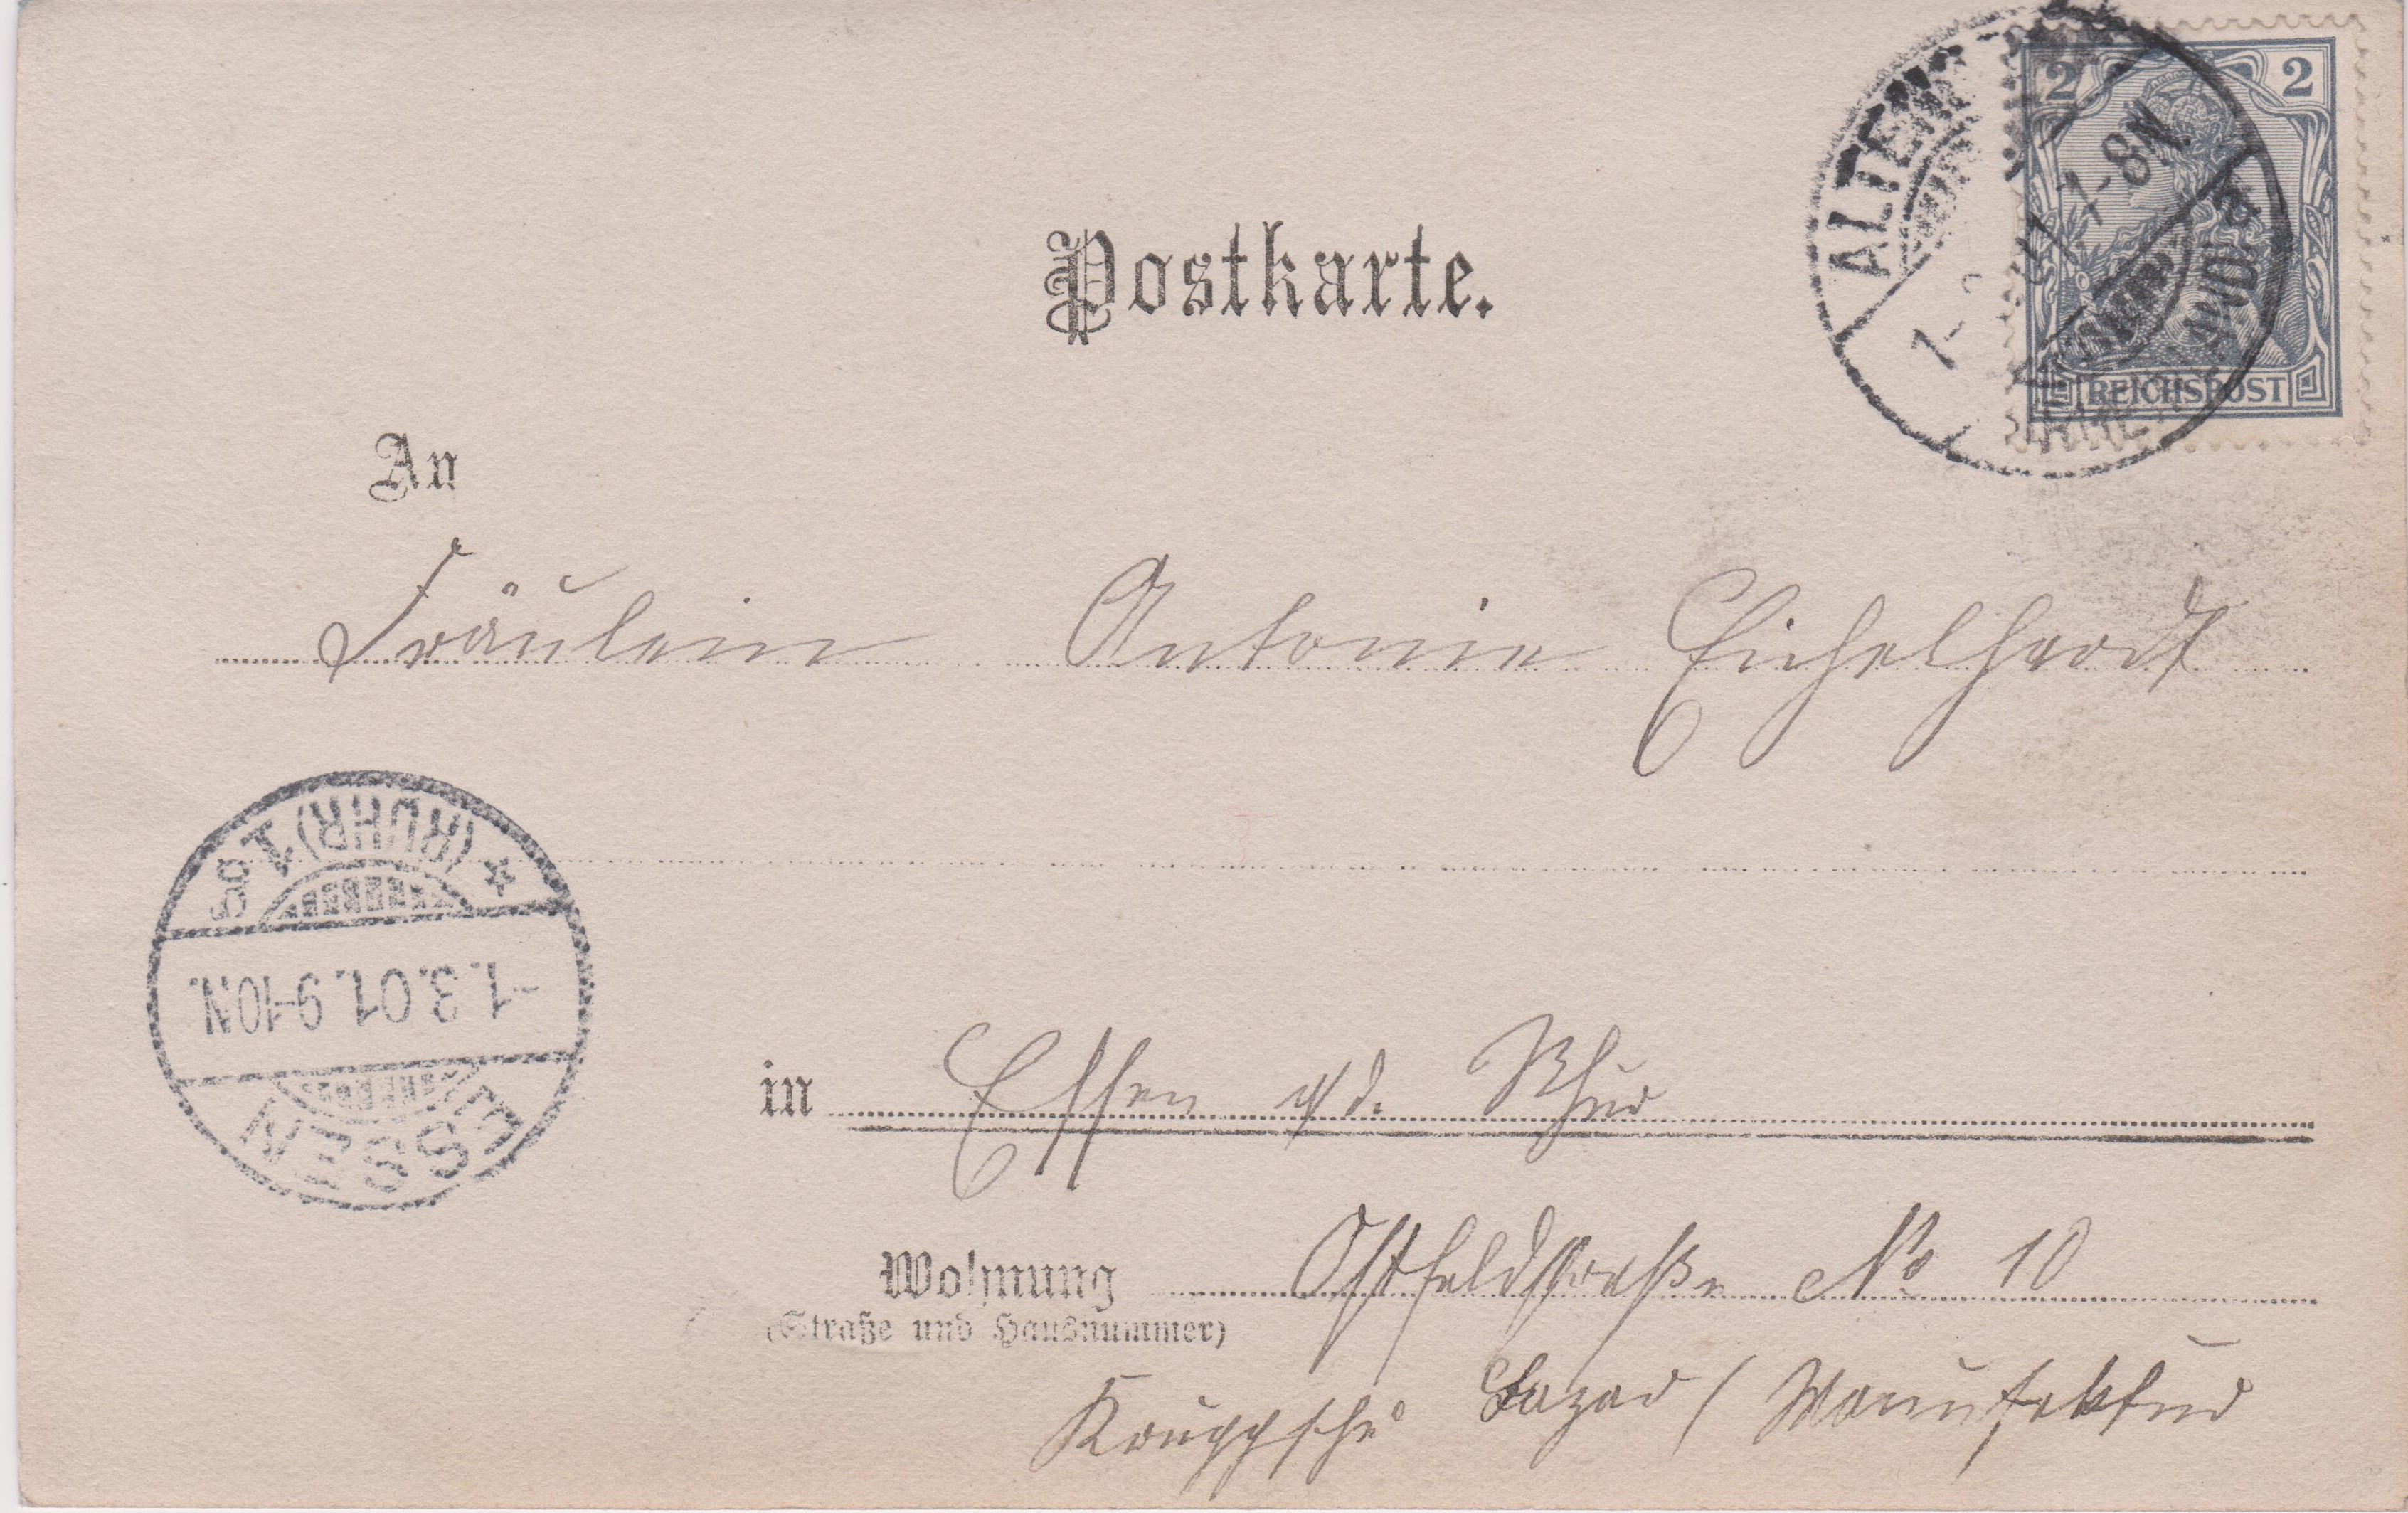 Postkarte.
ALTEN
2 2
7-8N.
REICHSPOST
An
Fräulein Antonie Eichelhardt
(RUHR) 1
-1.3.01. 9-10N.
ESSEN
in Essen a/d. Ruhr
Wohnung Ostfeldstraße No 10
(Straße und Hausnummer)
Kruppsche Bazar / Manufaktur